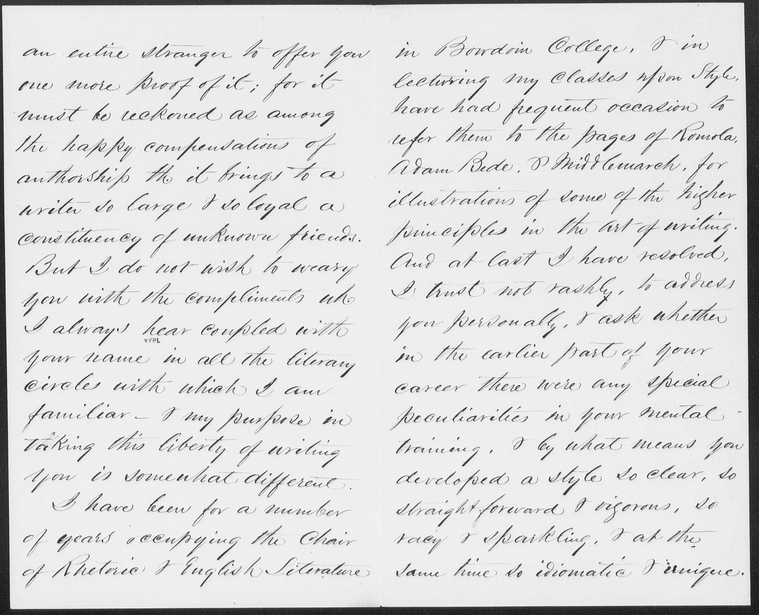 an entire stranger to offer you
one more proof of it; for it
must be reckoned as among
the happy compensations of
authorship th it brings to a
writer so large & so loyal a
constituency of unknown friends.
But I do not wish to weary
you with the compliments wh
I always hear coupled with
NYPL
your name in all the literary
circles with which I am
familiar – & my purpose in
taking this liberty of writing
you is somewhat different.
I have been for a number
of years occupying the Chair
of Rhetoric & English Literature
in Bowdoin College, & in
lecturing my classes upon Style,
have had frequent occasion to
refer them to the pages of Romola,
Adam Bede, & Middlemarch, for
illustrations of some of the higher
principles in the art of writing.
And at last I have resolved,
I trust not rashly, to address
you personally, & ask whether
in the earlier part of your
career there were any special
peculiarities in your mental
training, & by what means you
developed a style so clear, so
straightforward & vigorous, so
racy & sparkling, & at the
same time so idiomatic & unique.